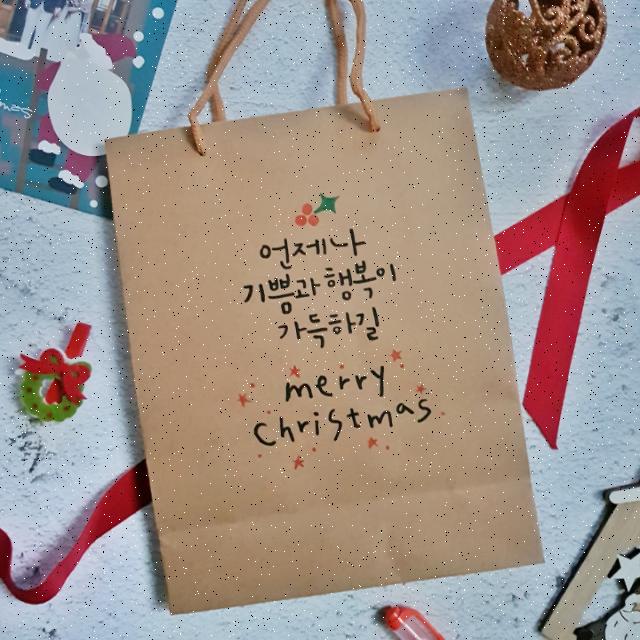 언제나
기쁨과 행복이
가득하길
merry
Christmas